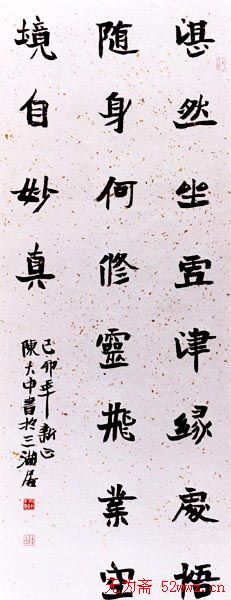 湛然坐津緣處悟
随身何修靈飛業空
境自妙真
己卯年新正
陳大中書於三湖居
无为斋 52wwz.cn